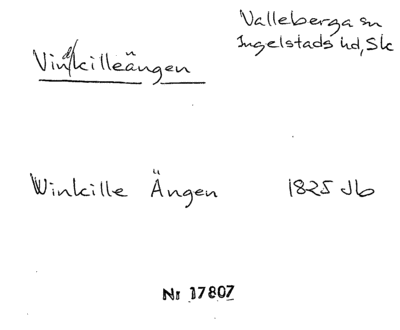 Valleberga sn
Ingelstads hd, Sk
Vindkilleängen
Winkille Ängen 1825 Jb
Nr 17807